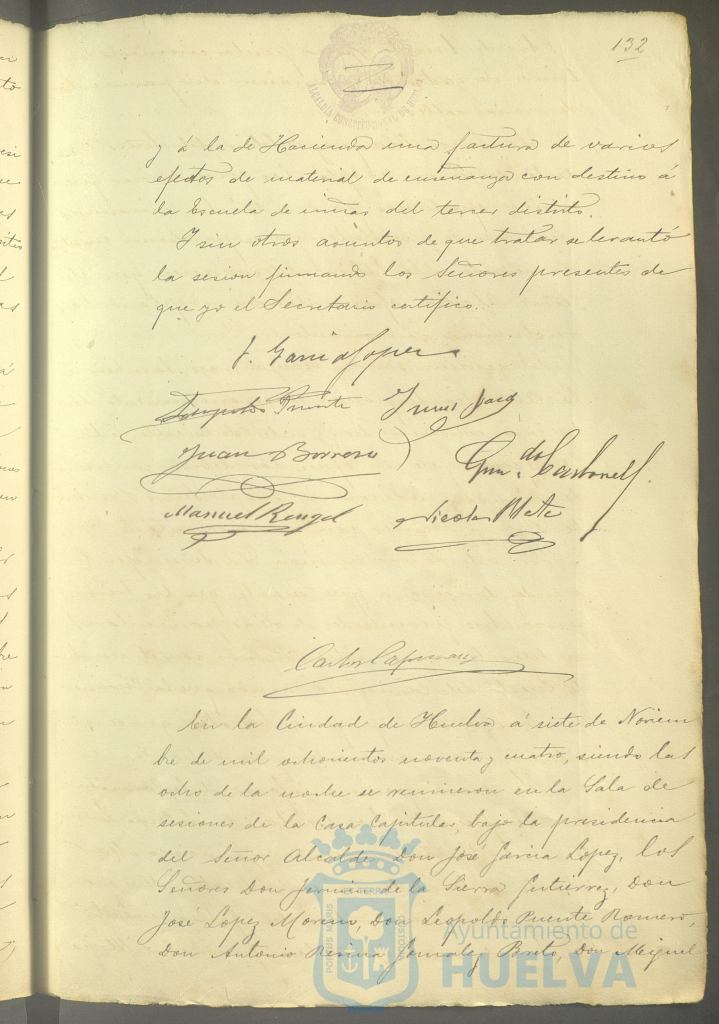 132
ALCALDIA CONSTITUCIONAL DE HUELVA
y á la de Hacienda una factura de varios
efectos de material de enseñanza con destino á
la Escuela de niñas del tercer distrito.
I sin otros asuntos de que tratar se levantó
la sesion firmando los Señores presentes de
que yo el Secretario certifico.
J. Garcia Lopez
Leopoldo Puente
Juan Borrero
Gum.do Carbonell
Manuel Rengel
Nicolas
Carlos
En la Ciudad de Huelva á siete de Noviem
bre de mil ochocientos noventa y cuatro, siendo las
ocho de la noche se reunieron en la Sala de
sesiones de la Casa Capitular, bajo la presidencia
del Señor Alcalde Don José Garcia Lopez, los
Señores Don de la Sierra Gutierrez, Don
José Lopez Moreno, Don Leopoldo Puente Romero,
Don Antonio Resina Gonzalez Don Miguel
PORTUS MARIS ET TERRAE CUSTODIA
Ayuntamiento de
HUELVA